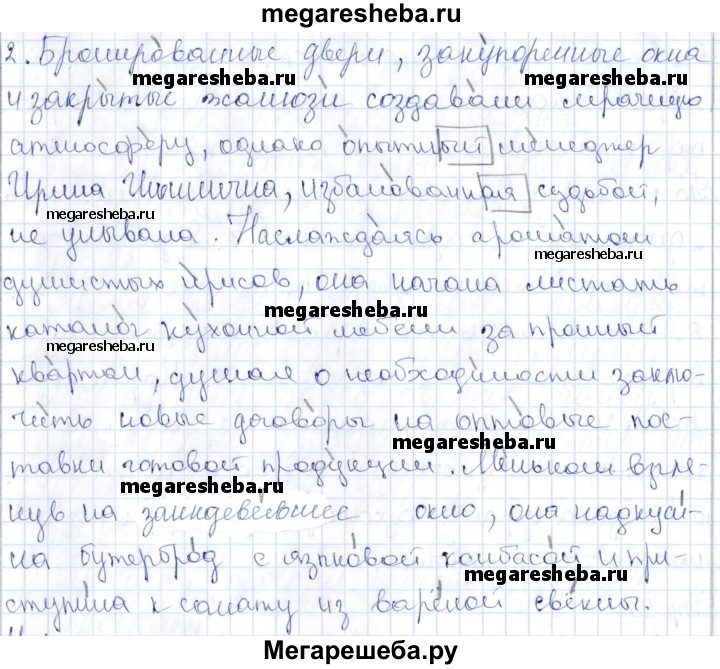 megaresheba.ru
2. Бронированные двери, закупоренные окна
megaresheba.ru megaresheba.ru
и закрытые жалюзи создавали мрачную
атмосферу, однако опытный менеджер
Ирина Ильинична, избалованная судьбой,
megaresheba.ru
не унывала. Наслаждаясь ароматом
megaresheba.ru
душистых ирисов, она начала листать
megaresheba.ru
каталог кухонной мебели за прошлый
megaresheba.ru
квартал, думая о необходимости заклю-
чить новые договоры на оптовые пос-
megaresheba.ru
тавки готовой продукции. Мельком взгля-
megaresheba.ru
нув на заиндевевшее окно, она надкуси-
ла бутерброд с языковой колбасой и при-
megaresheba.ru
ступила к салату из варёной свёклы.
Мегарешеба.ру